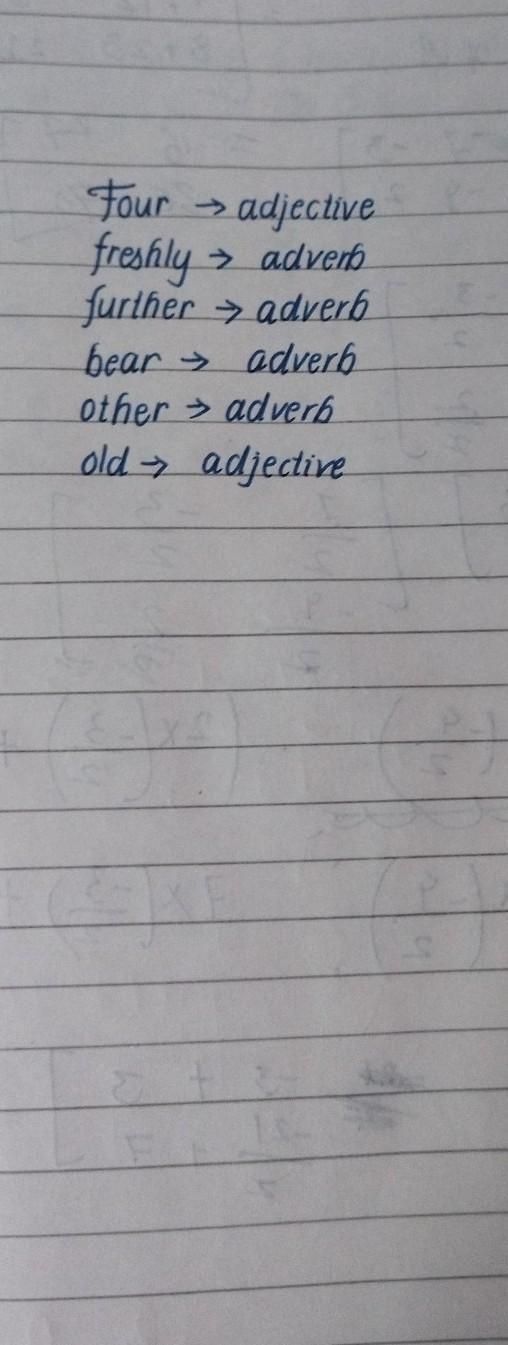 Four → adjective
freshly → adverb
further → adverb
bear → adverb
other → adverb
old → adjective